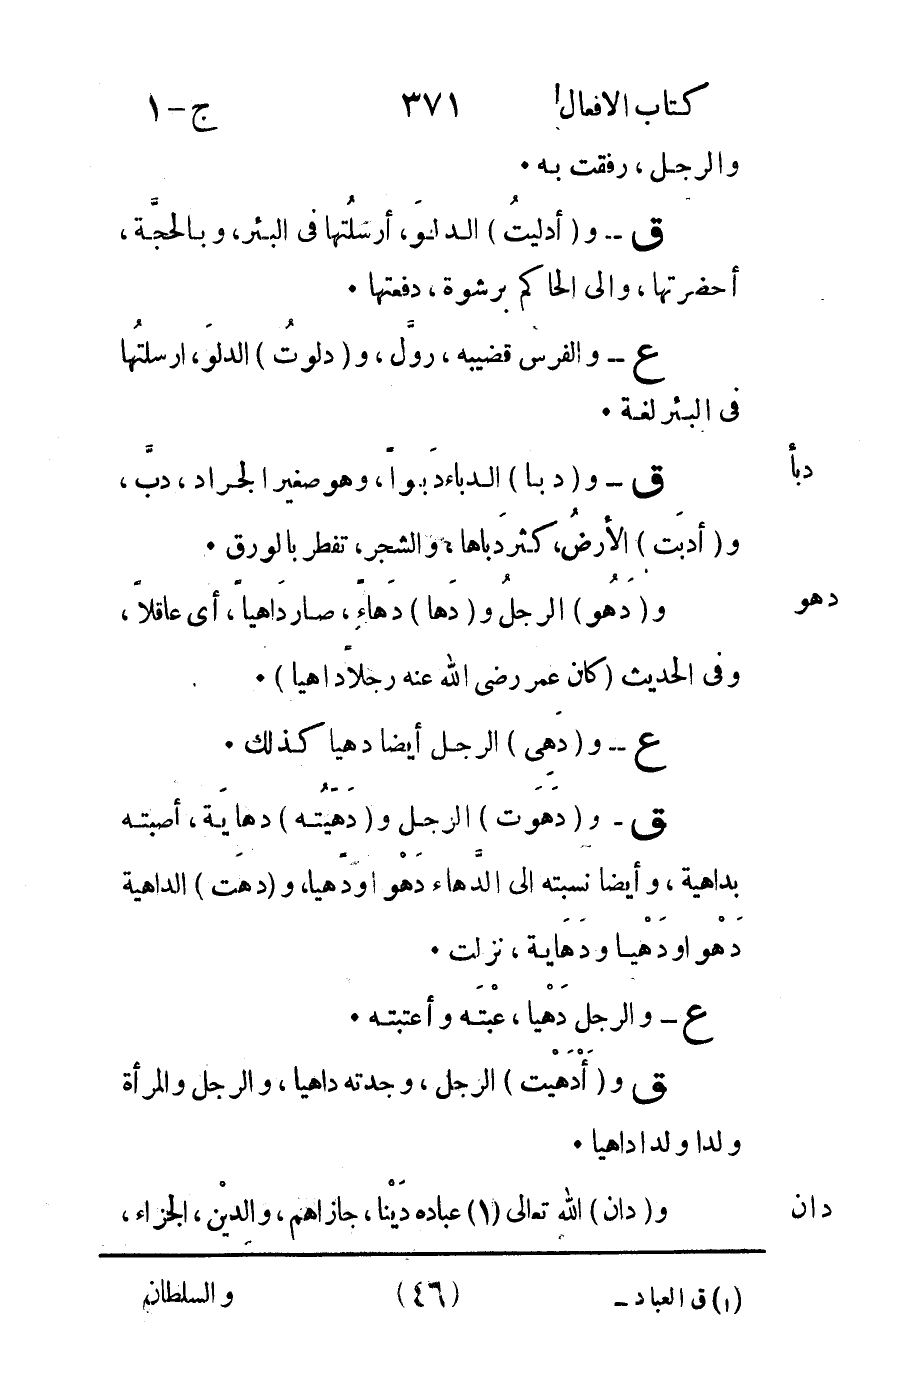 كتاب الافعال ٣٧١ ج – ١
والرجل ، رفقت به •
ق – و ( أدليتُ ) الدلوَ، أرسَلتُها فى البئر، وبالحجَّة ،
أحضرتها ، والى الحاكم برشوة ، دفعتها •
ع – والفرس قضيبه ، روَّل ، و ( دلوتُ ) الدلوَ، ارسلتُها
فى البئر لغة •
دبأ
ق – و ( دبا ) الدباءدَبواً ، وهو صغير الجراد ، دبَّ ،
و ( أدبَت ) الأرضُ، كثر دَباها ، والشجر، تفطر بالورق •
دهو
و ( دَهُو ) الرجلُ و ( دَها ) دَهاءً ، صار دَاهياً ، أى عاقلاً ،
وفى الحديث ( كان عمر رضى الله عنه رجلاً داهيا ) •
ع – و ( دَهى ) الرجل أيضا دهيا كذلك •
ق - و ( دَهَوت ) الرجل و ( دَهَيتُه ) دهايَة ، أصبته
بداهية ، وأيضا نسبته الى الدَّهاء دَهْوا ودَهيا، و ( دهَت ) الداهية
دَهْوا ودَهْيا ودَهَاية ، نزلت •
ع – والرجل دَهْيا ، عْبَته وأعتبته •
ق و ( أَدْهَيْت ) الرجل ، وجدته داهيا ، والرجل والمرأة
ولدا ولدا داهيا •
دان
و ( دان ) الله تعالى (١) عباده دَيْنا ، جازاهم ، والديْن ، الجزاء ،
(١) ق العباد – (٤٦) والسلطان